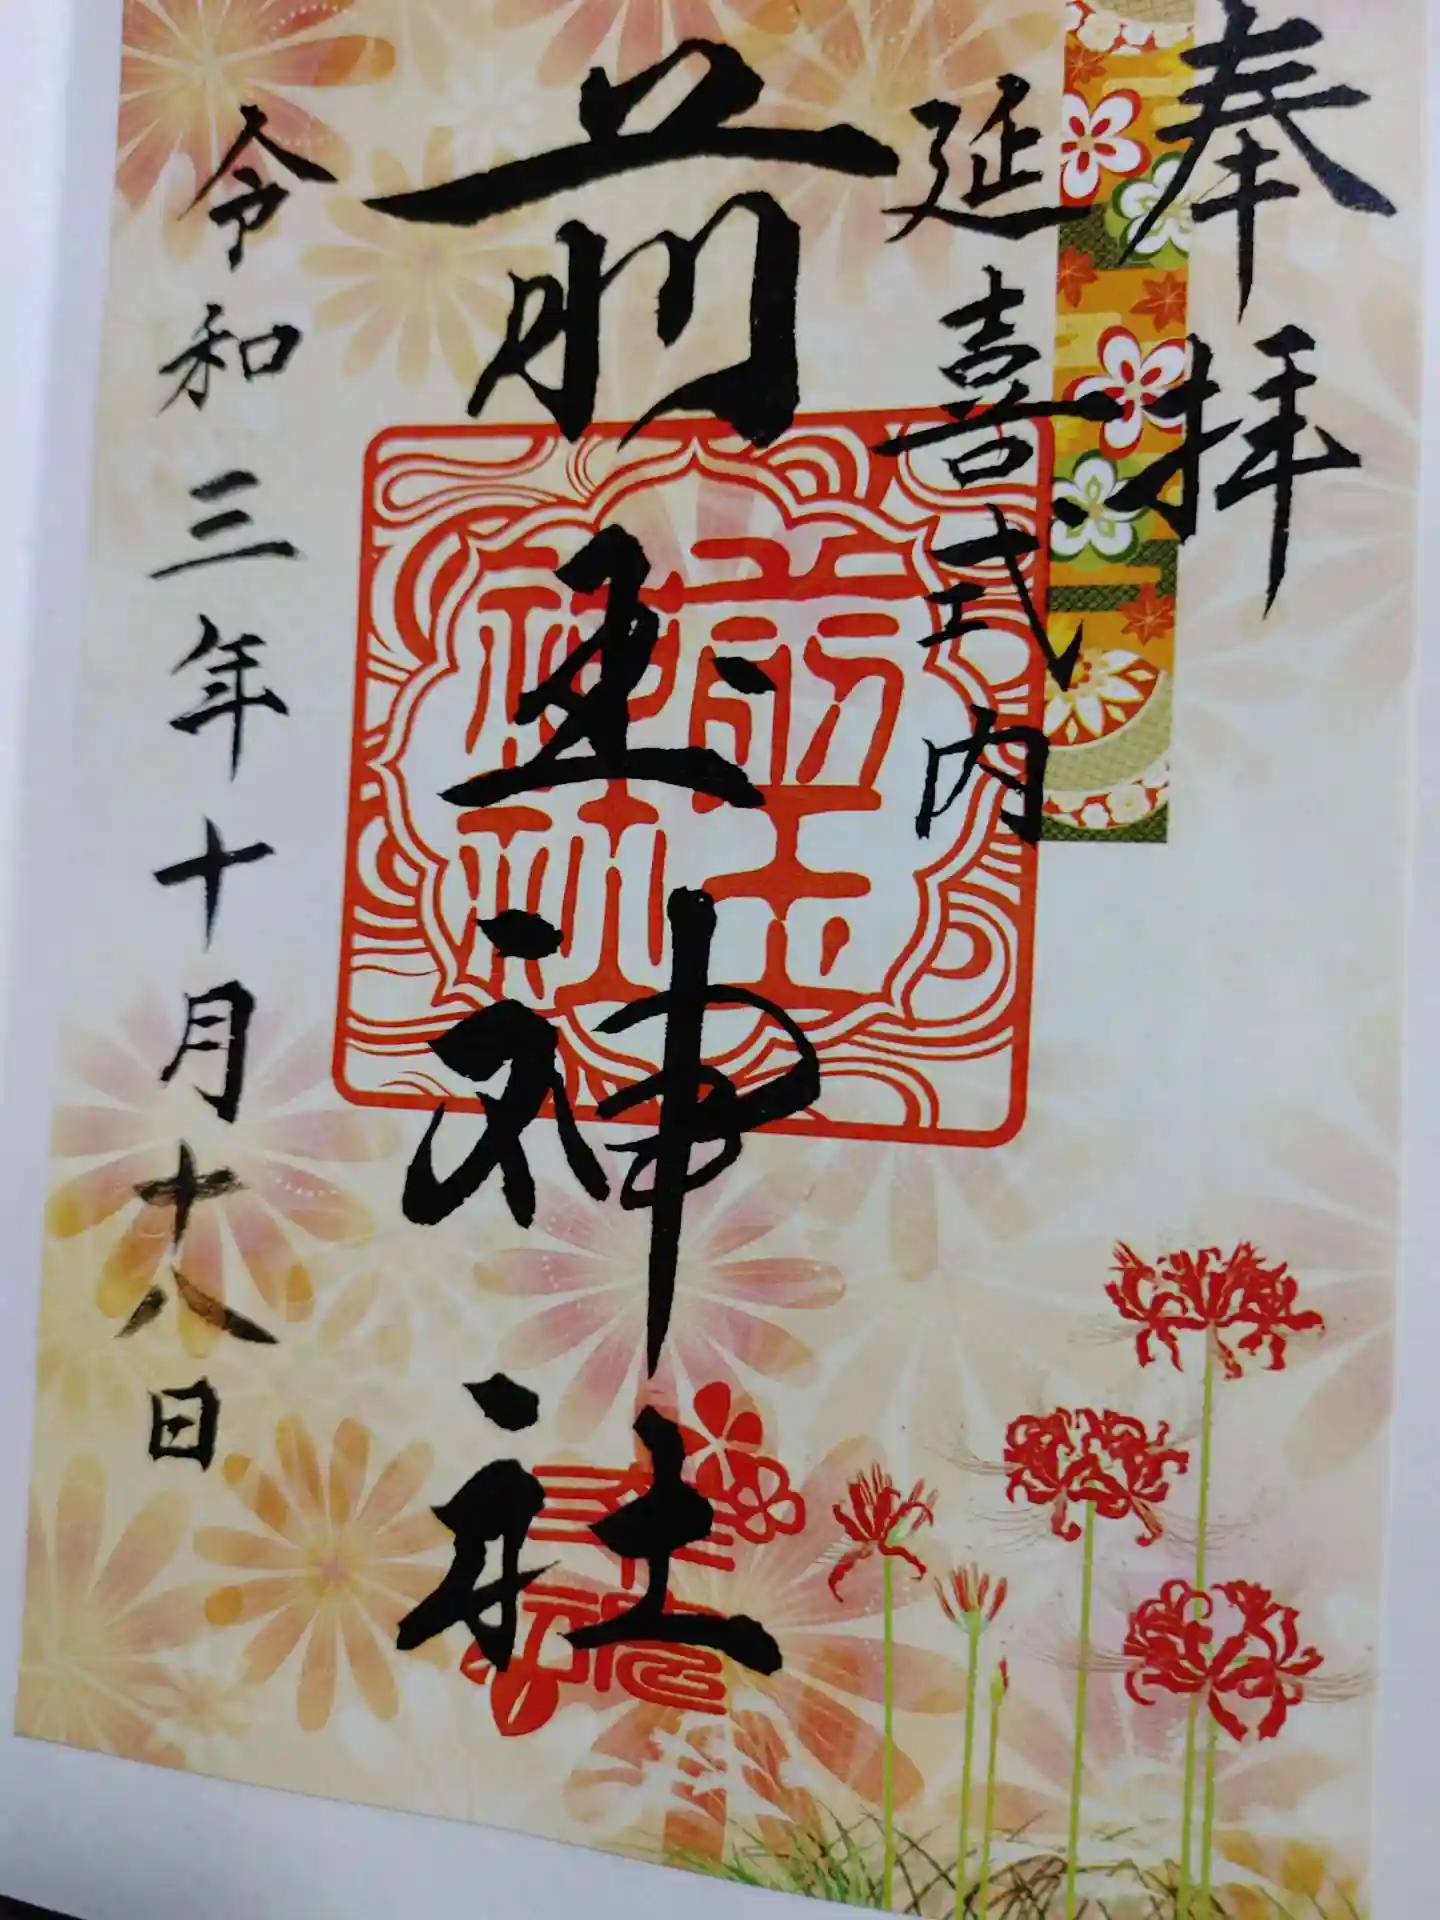 奉拝
延喜式内
前玉神社
前玉神社
令和三年十月十八日